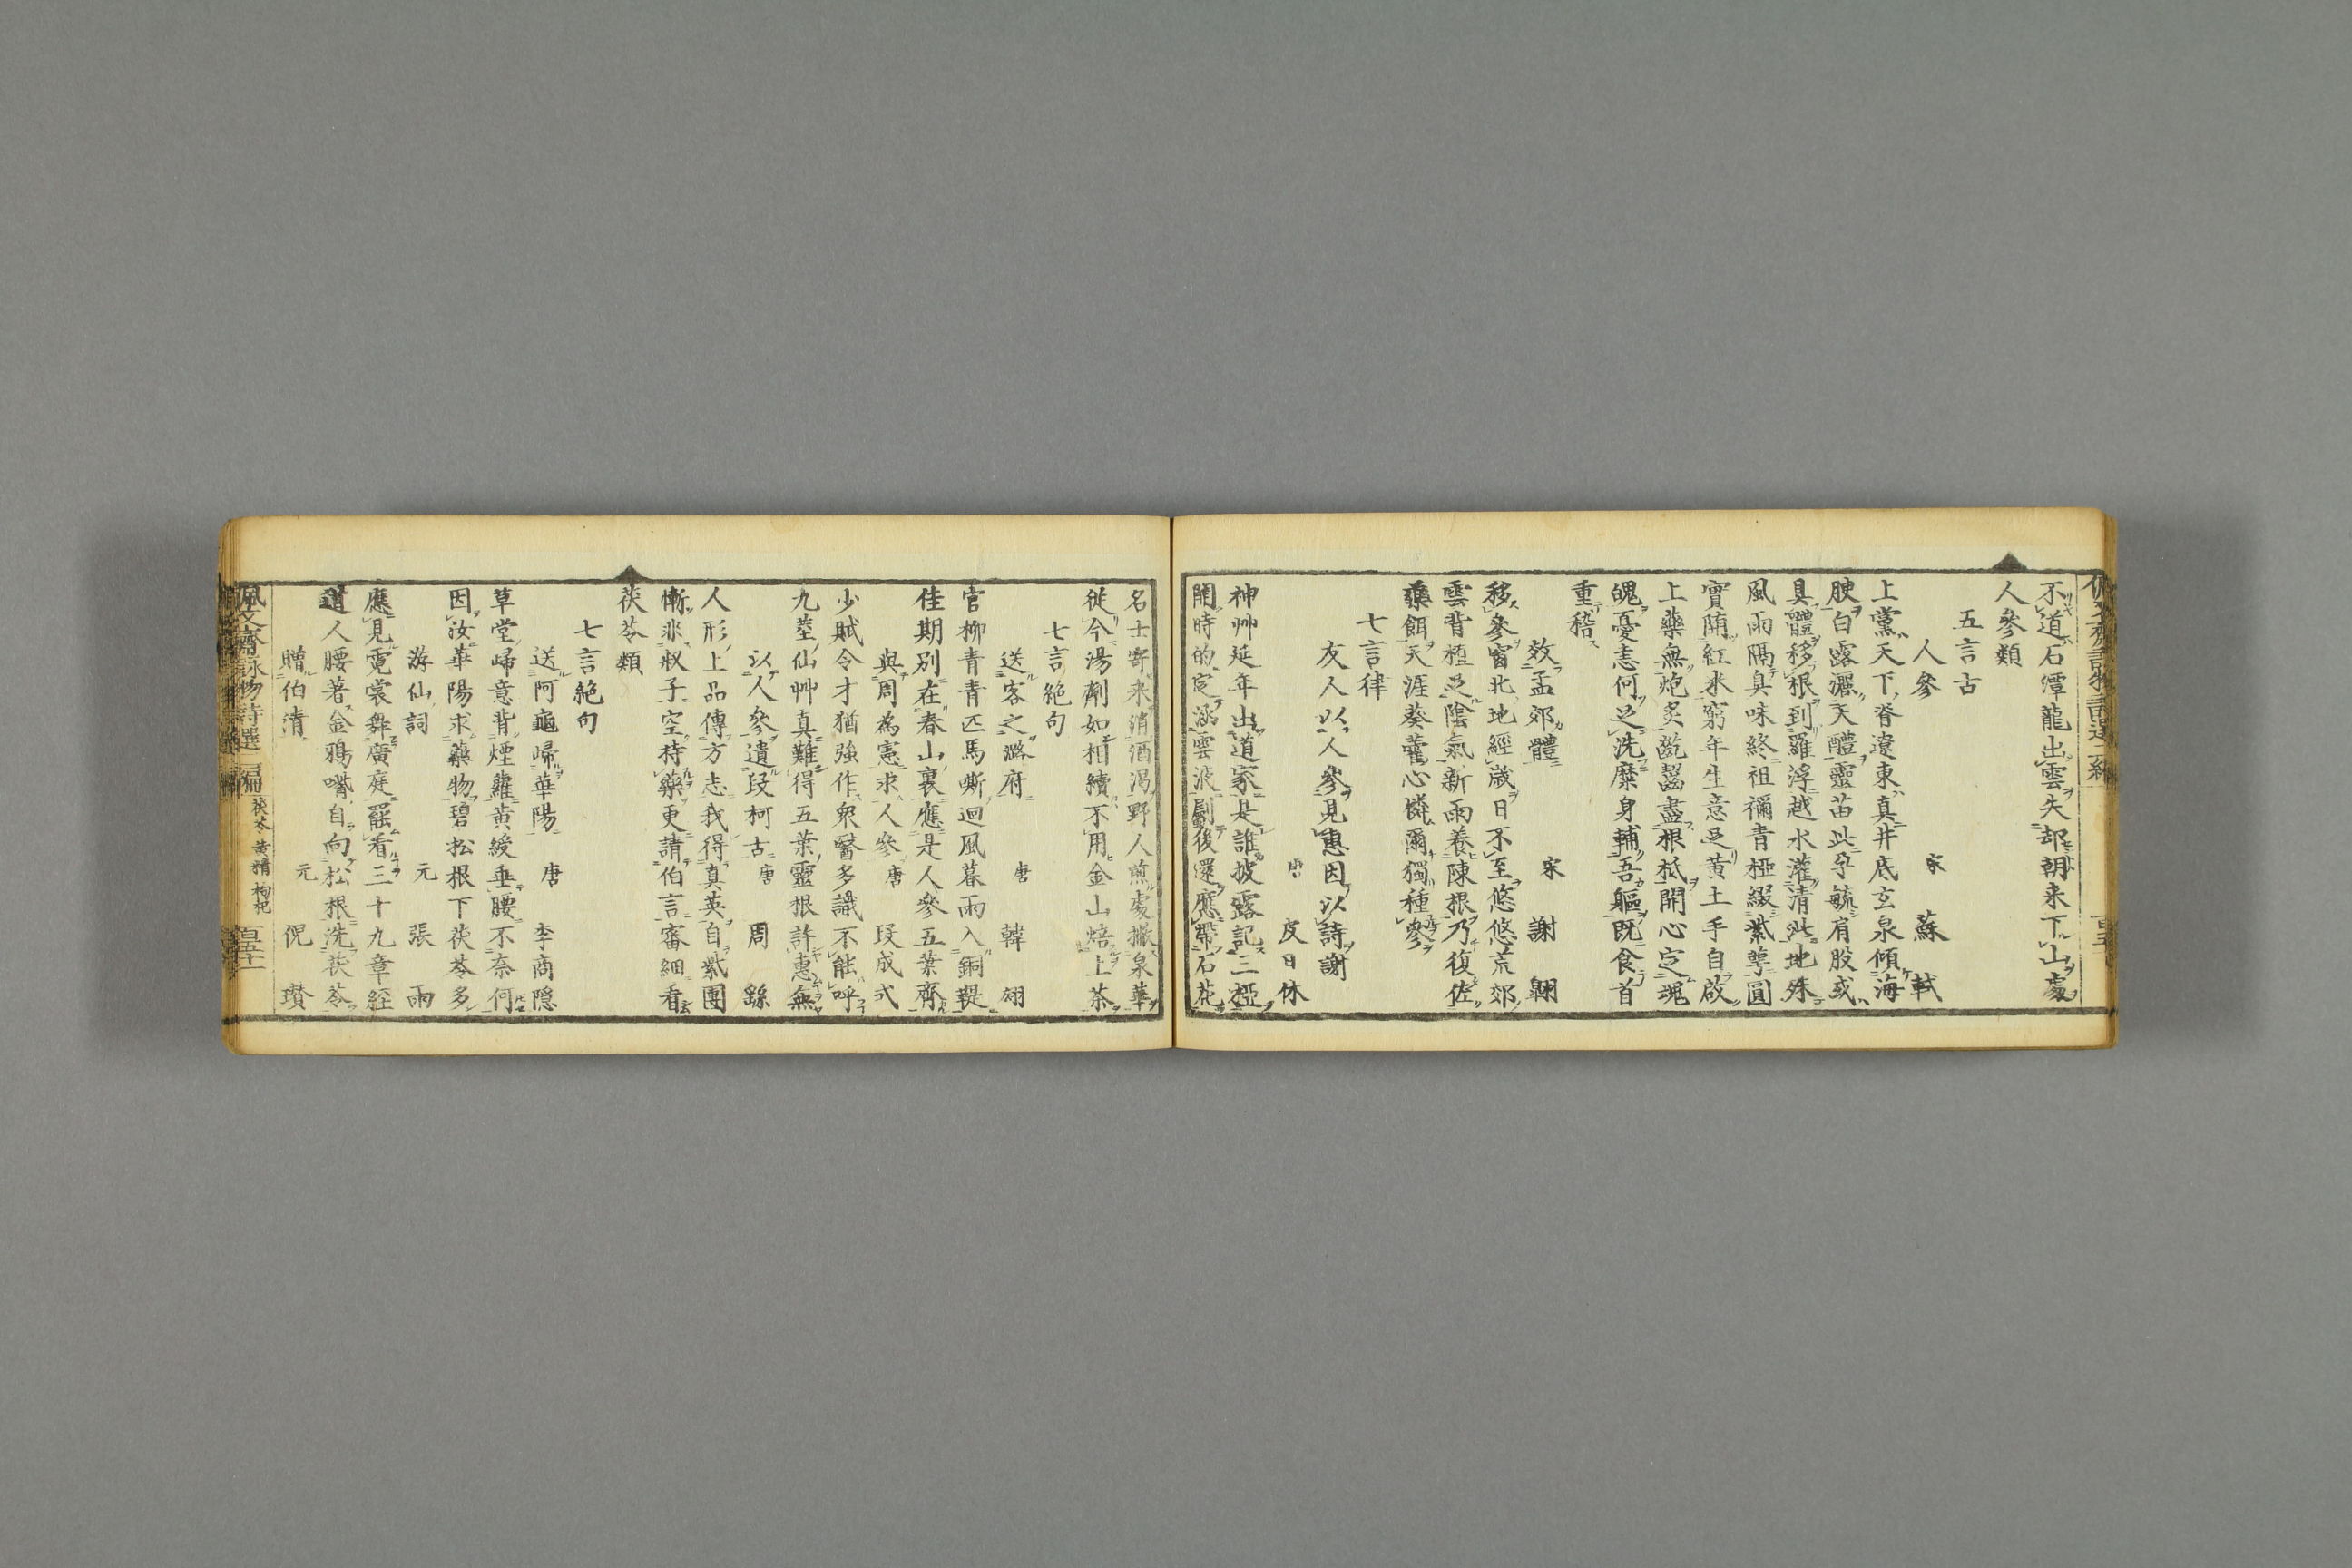 不道石潭龍出雲失却朝来下山處
人參類
五言古
人參 宋 蘇軾
上黨天下脊遼東真井底玄泉傾海
腴白露灑天醴靈苗此孕毓肩股或
具體移根到羅浮越水灌清泚地殊
風雨隔臭味終祖禰青椏綴紫萼圓
實墮紅米窮年生意足黄土手自啟
上藥無炮炙齕齧盡根柢開心定魂
魄憂恚何足洗糜身輔吾軀既食首
重稽
效孟郊體 宋 謝翱
移參窗北地經歲日不至悠悠荒郊
雲背植足陰氣新雨養陳根乃復佐
藥餌天涯葵藿心憐爾獨種參
七言律
友人以人參見惠因以詩謝
唐 皮日休
神艸延年出道家是誰披露記三椏
開時的定涵雲液劚後還應帶石花
名士寄来消酒渴野人煎處撇泉華
從今湯劑如相續不用金山焙上茶
七言絶句
送客之潞府 唐 韓翃
官柳青青匹馬嘶迴風暮雨入銅鞮
佳期別在春山裏應是人參五葉齊
與周為憲求人參 唐 段成式
少賦令才猶強作衆醫多識不能呼
九莖仙艸真難得五葉靈根許惠無
以人參遺段柯古 唐 周繇
人形上品傳方志我得真英自紫團
慚非叔子空持藥更請伯言審細看
茯苓類
七言絶句
送阿龜歸華陽 唐 李商隱
草堂歸意背煙蘿黄綬垂腰不奈何
因汝華陽求藥物碧松根下茯苓多
游仙詞 元 張雨
應見霓裳舞廣庭罷看三十九章經
道人腰著金鴉嘴自向松根洗茯苓
贈伯清 元 倪瓚
佩文齋詠物詩選二編 茯苓 黄精 枸杞 百五十二